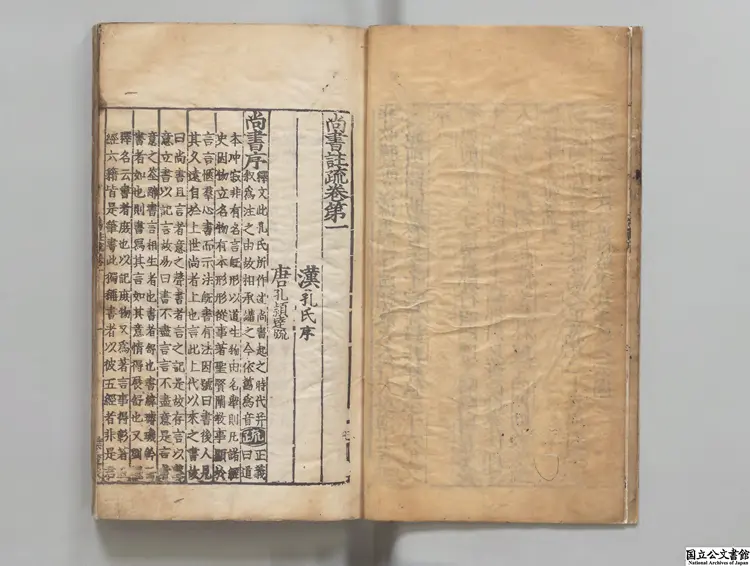 尚書註疏卷第一
漢孔氏序
唐孔頴達疏
尚書序
釋文此孔氏所作述尚書起之時代并
叙爲注之由故相承講之今依舊爲音
疏
正義
曰道
本冲寂非有名言既形以道生物由名舉則凡諸經
史因物立名物有本形形從事著聖賢闡教事顯於
言言愜羣心書而示法既書有法因號曰書後人見
其久遠自於上世尚者上也言此上代以來之書故
曰尚書且言者意之聲書者言之記是故存言以聲
意立書以記言故易曰書不盡言言不盡意是言者
意之筌蹄書言相生者也書者舒也書緯璿璣鈐云
書者如也則書寫其言如其意情得展舒也又劉熙
釋名云書者庶也以記庶物又爲著言事得彰著五
經六籍皆是筆書此獨稱書者以彼五經者非是君
国立公文書館
National Archives of Japan